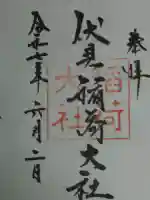 奉拝
伏見稲荷大社
令和七年六月二日